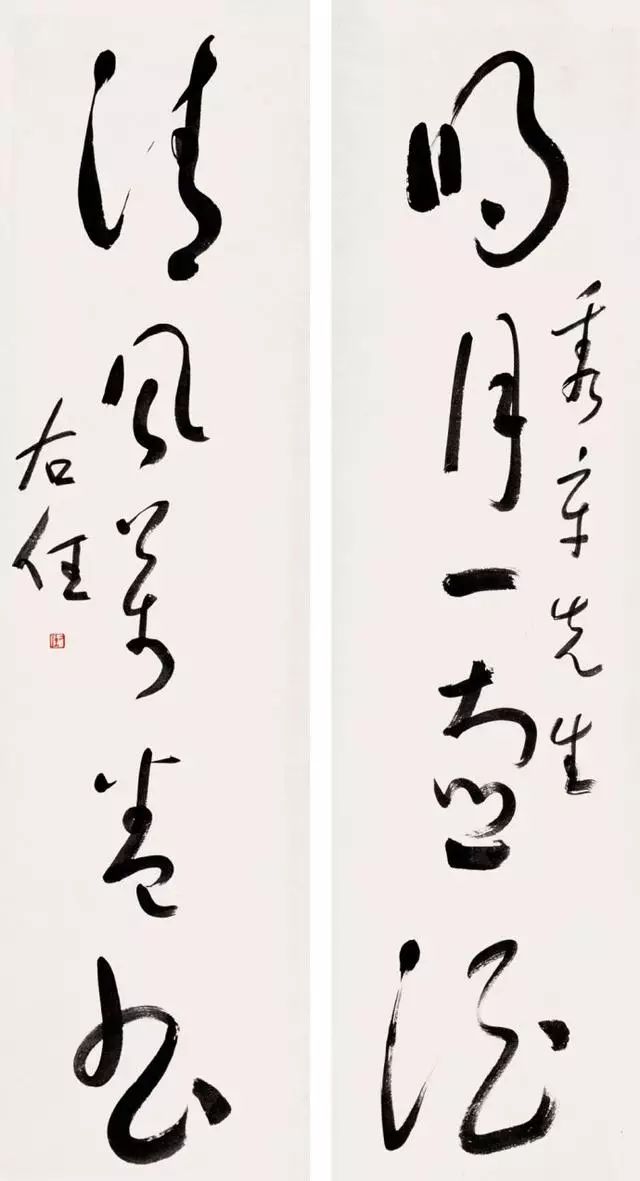 明月一壺酒
秀章先生
清風萬卷書
右任